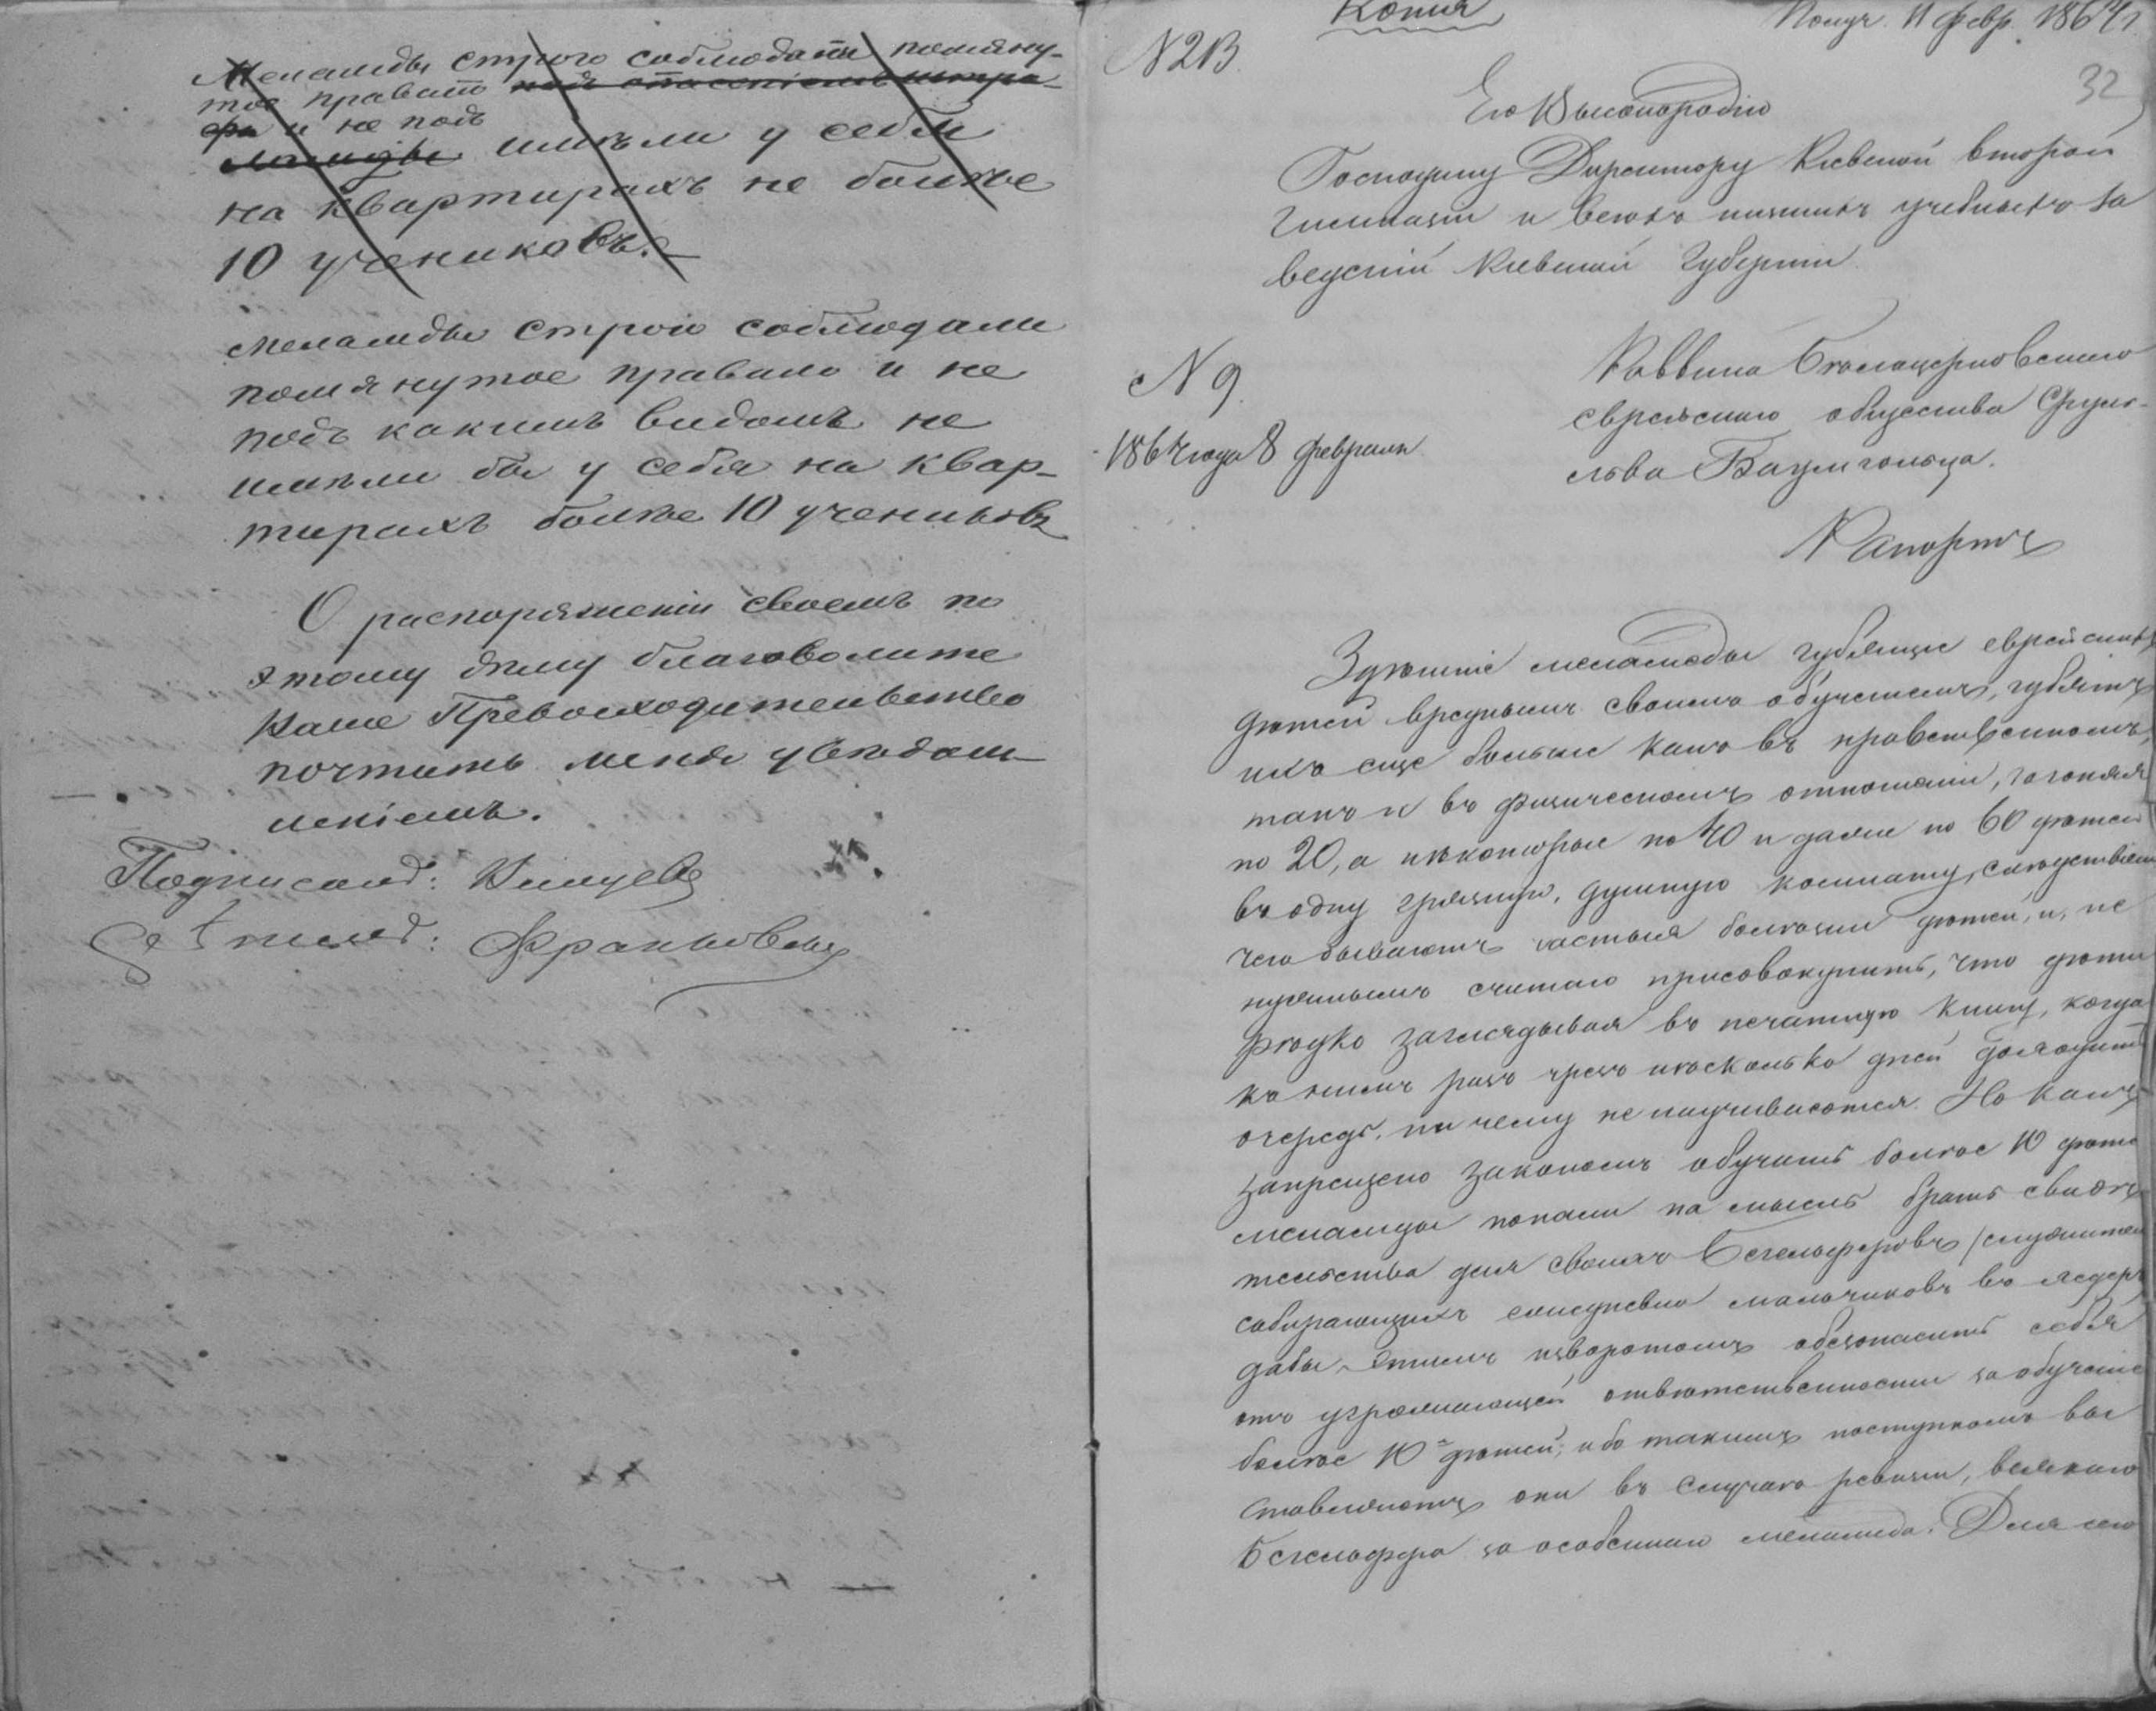 Меламеды строго соблюдали помяну-
тое правило подъ опасеніемъ штра-
фа и не подъ
имѣли у себя
на квартирахъ не болѣе
10 учениковъ.
меламеды строго соблюдали
помянутое правило и не
подъ какимъ видомъ не
имѣли бы у себя на квар-
тирахъ болѣе 10 учениковъ
О распоряженіи своемъ по
этому дѣлу благоволите
Ваше Превосходительство
почтить меня увѣдом-
леніемъ.
Подписалъ:
Скрѣпилъ: Франковскій
Копія
Получ. 11 февр. 1864 г.
N 213
32
Его Высокородію
Господину Директору Кіевской второй
Гимназіи и всѣхъ низшихъ учебныхъ за
веденій Кіевской Губерніи
N 9.
1864 года 8 февраля
Раввина Бѣлоцерковскаго
еврейскаго общества Сруль-
Лейба Баумгольца.
Рапортъ
Здѣшніе меламеды губящіе еврейскихъ
дѣтей вреднымъ своимъ обученіемъ, губятъ
ихъ еще больше какъ въ нравственномъ,
такъ и въ физическомъ отношеніи, загоняя
по 20, а нѣкоторые по 40 и даже по 60 дѣтей
въ одну грязную, душную комнату, слѣдствіемъ
чего бываютъ частыя болѣзни дѣтей, и, не
нужнымъ считаю присовокупить, что дѣти
рѣдко заглядывая въ печатную книгу, когда
къ нимъ разъ чрезъ нѣсколько дней доходитъ
очередь, ни чему не научиваются. Но какъ
запрещено закономъ обучать болѣе 10 дѣтей
меламеды попали на мысль брать свидѣ
тельства для своихъ Бегельферовъ /служителей
собирающихъ ежедневно мальчиковъ въ хедеръ
дабы этимъ изворотомъ обезопасить себя
отъ угрожающей отвѣтственности за обученіе
болѣе 10 дѣтей; ибо такимъ поступкомъ вы
ставляютъ они въ случаѣ ревизіи, всякаго
Бегельфера за особеннаго меламеда. Для сего